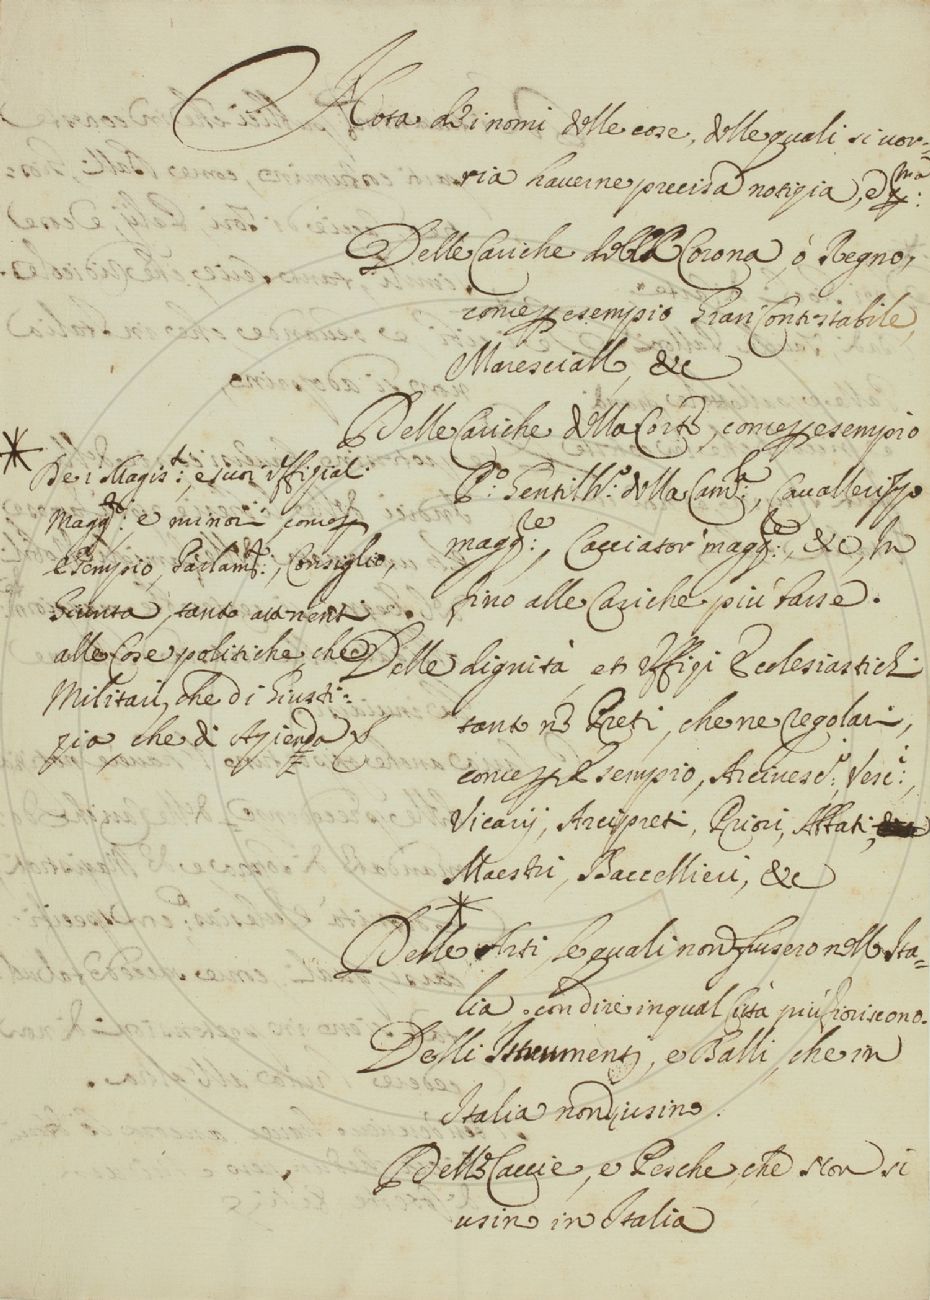 Nota de i nomi delle cose, delle quali si vor=
ria haverne precisa notizia, e p.ma
Delle Cariche della Corona, ò Regno,
come per esempio Gran Contestabile,
Maresciall, &c
Delle Cariche della Corte, come per esempio
P.o Gentilh.o della Cam.a, Cavallerizzo
magg.re, Cacciator magg.re, &c, in
fino alle Cariche più basse.
* De i Magis.ti: e suoi Uffiziali
magg.ri: e minori come per
esempio, Parlam.ti:, Consiglio,
Giunta, tanto attinenti
alle Cose politiche, che
Militari, che di Giusti=
zia, che di Azienda
Delle dignità, et Uffizi Ecclesiastichi
tanto ne Preti, che ne regolari,
come per Esempio, Arcivesc.i:, Vesc.i:,
Vicarij, Arcipreti, Priori, Abbati,
Maestri, Baccellieri, &c
*
Delle Arti, le quali non fussero nell Ita=
lia. con dire in qual Città più fioriscono.
Delli Istrumenti, e Balli, che in
Italia non si usino.
Delle Caccie, e Pesche che non si
usino in Italia